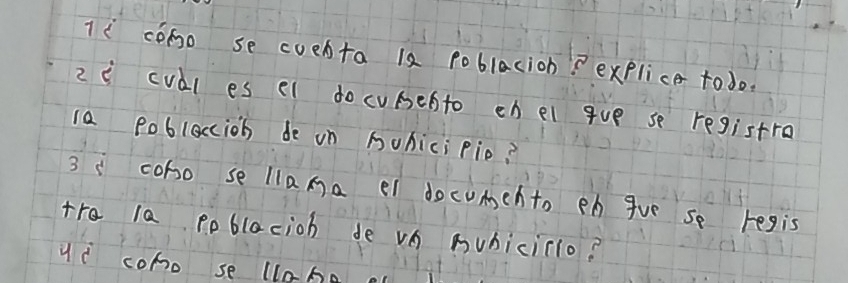 1¿ cómo se cuenta la poblacion? explica todo.
2¿ cuál es el documento en el que se registra
la poblaccion de un municipio?
3¿ como se llama el documento en que se regis
tra la poblacion de un municipio?
4¿ como se llama el